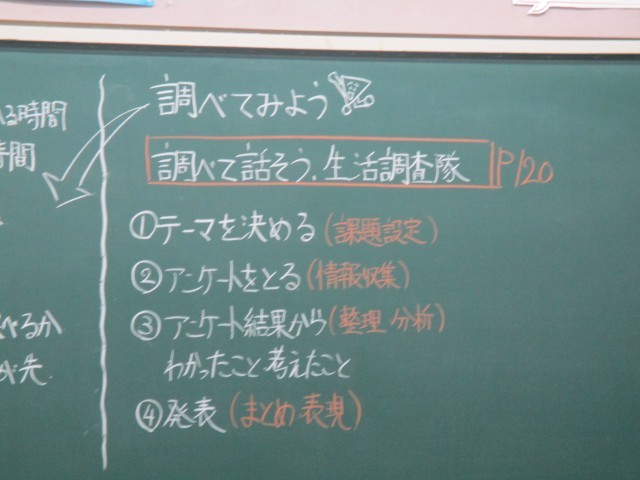 る時間
時間
べるか
が先
調べてみよう
調べて話そう.生活調査隊 P120
①テーマを決める(課題設定)
②アンケートをとる(情報収集)
③アンケート結果から(整理 分析)
わかったこと考えたこと
④発表(まとめ表現)